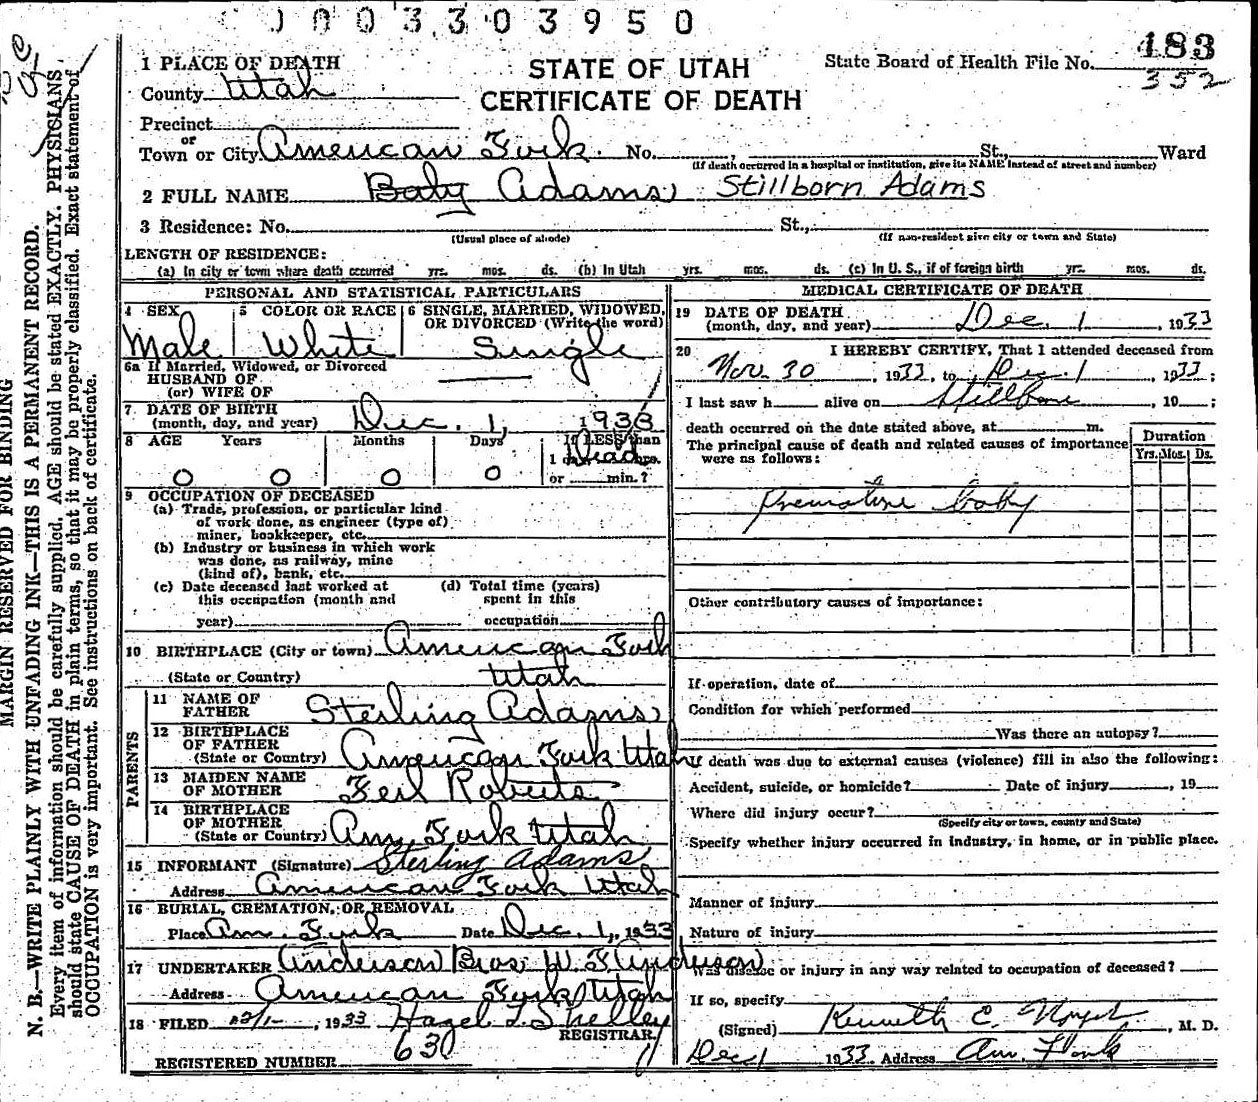 0003303950
1 PLACE OF DEATH
County Utah
STATE OF UTAH
CERTIFICATE OF DEATH
State Board of Health File No. 183
352
Precinct
or
Town or City American Fork. No. St., Ward
(If death occurred in a hospital or institution, give its NAME instead of street and number)
2 FULL NAME Baby Adams Stillborn Adams
3 Residence: No. St.,
(Usual place of abode) (If non-resident give city or town and State)
LENGTH OF RESIDENCE:
(a) In city or town where death occurred yrs. mos. ds. (b) In Utah yrs. mos. ds. (c) In U. S., if of foreign birth yrs. mos. ds.
PERSONAL AND STATISTICAL PARTICULARS
4 SEX 5 COLOR OR RACE 6 SINGLE, MARRIED, WIDOWED,
OR DIVORCED (Write the word)
Male White Single
6a If Married, Widowed, or Divorced
HUSBAND OF
(or) WIFE OF
7 DATE OF BIRTH
(month, day, and year) Dec. 1, 1933
8 AGE Years Months Days If LESS than
1 day, hrs.
Dead
0 0 0 0 or min.?
9 OCCUPATION OF DECEASED
(a) Trade, profession, or particular kind
of work done, as engineer (type of)
miner, bookkeeper, etc.
(b) Industry or business in which work
was done, as railway, mine
(kind of), bank, etc.
(c) Date deceased last worked at (d) Total time (years)
this occupation (month and spent in this
year) occupation.
10 BIRTHPLACE (City or town) American Fork
(State or Country) Utah
PARENTS
11 NAME OF
FATHER Sterling Adams
12 BIRTHPLACE
OF FATHER
(State or Country) American Fork Utah
13 MAIDEN NAME
OF MOTHER Roberts
14 BIRTHPLACE
OF MOTHER
(State or Country) Am Fork Utah
15 INFORMANT (Signature) Sterling Adams
Address American Fork Utah
16 BURIAL, CREMATION, OR REMOVAL
Place Am. Fork Date Dec. 1, 1933
17 UNDERTAKER Anderson Bros. W. F. Anderson
Address American Fork Utah
18 FILED 1933 Hazel T. Shelley
REGISTRAR
REGISTERED NUMBER 630
MEDICAL CERTIFICATE OF DEATH
19 DATE OF DEATH
(month, day, and year) Dec. 1, 1933
20 I HEREBY CERTIFY, That I attended deceased from
Nov. 30, 1933, to Dec. 1, 1933;
I last saw h alive on Stillborn, 19 ;
death occurred on the date stated above, at m.
The principal cause of death and related causes of importance
were as follows:
Duration
Yrs. Mos. Ds.
Premature baby
Other contributory causes of importance:
If operation, date of
Condition for which performed
Was there an autopsy?
If death was due to external causes (violence) fill in also the following:
Accident, suicide, or homicide? Date of injury, 19
Where did injury occur?
(Specify city or town, county and State)
Specify whether injury occurred in industry, in home, or in public place.
Manner of injury
Nature of injury
Was disease or injury in any way related to occupation of deceased?
If so, specify
(Signed) Kenneth E. , M. D.
Dec 1 1933 Address Am. Fork
MARGIN RESERVED FOR BINDING
N. B.—WRITE PLAINLY WITH UNFADING INK—THIS IS A PERMANENT RECORD.
Every item of information should be carefully supplied. AGE should be stated EXACTLY. PHYSICIANS
should state CAUSE OF DEATH in plain terms, so that it may be properly classified. Exact statement of
OCCUPATION is very important. See instructions on back of certificate.